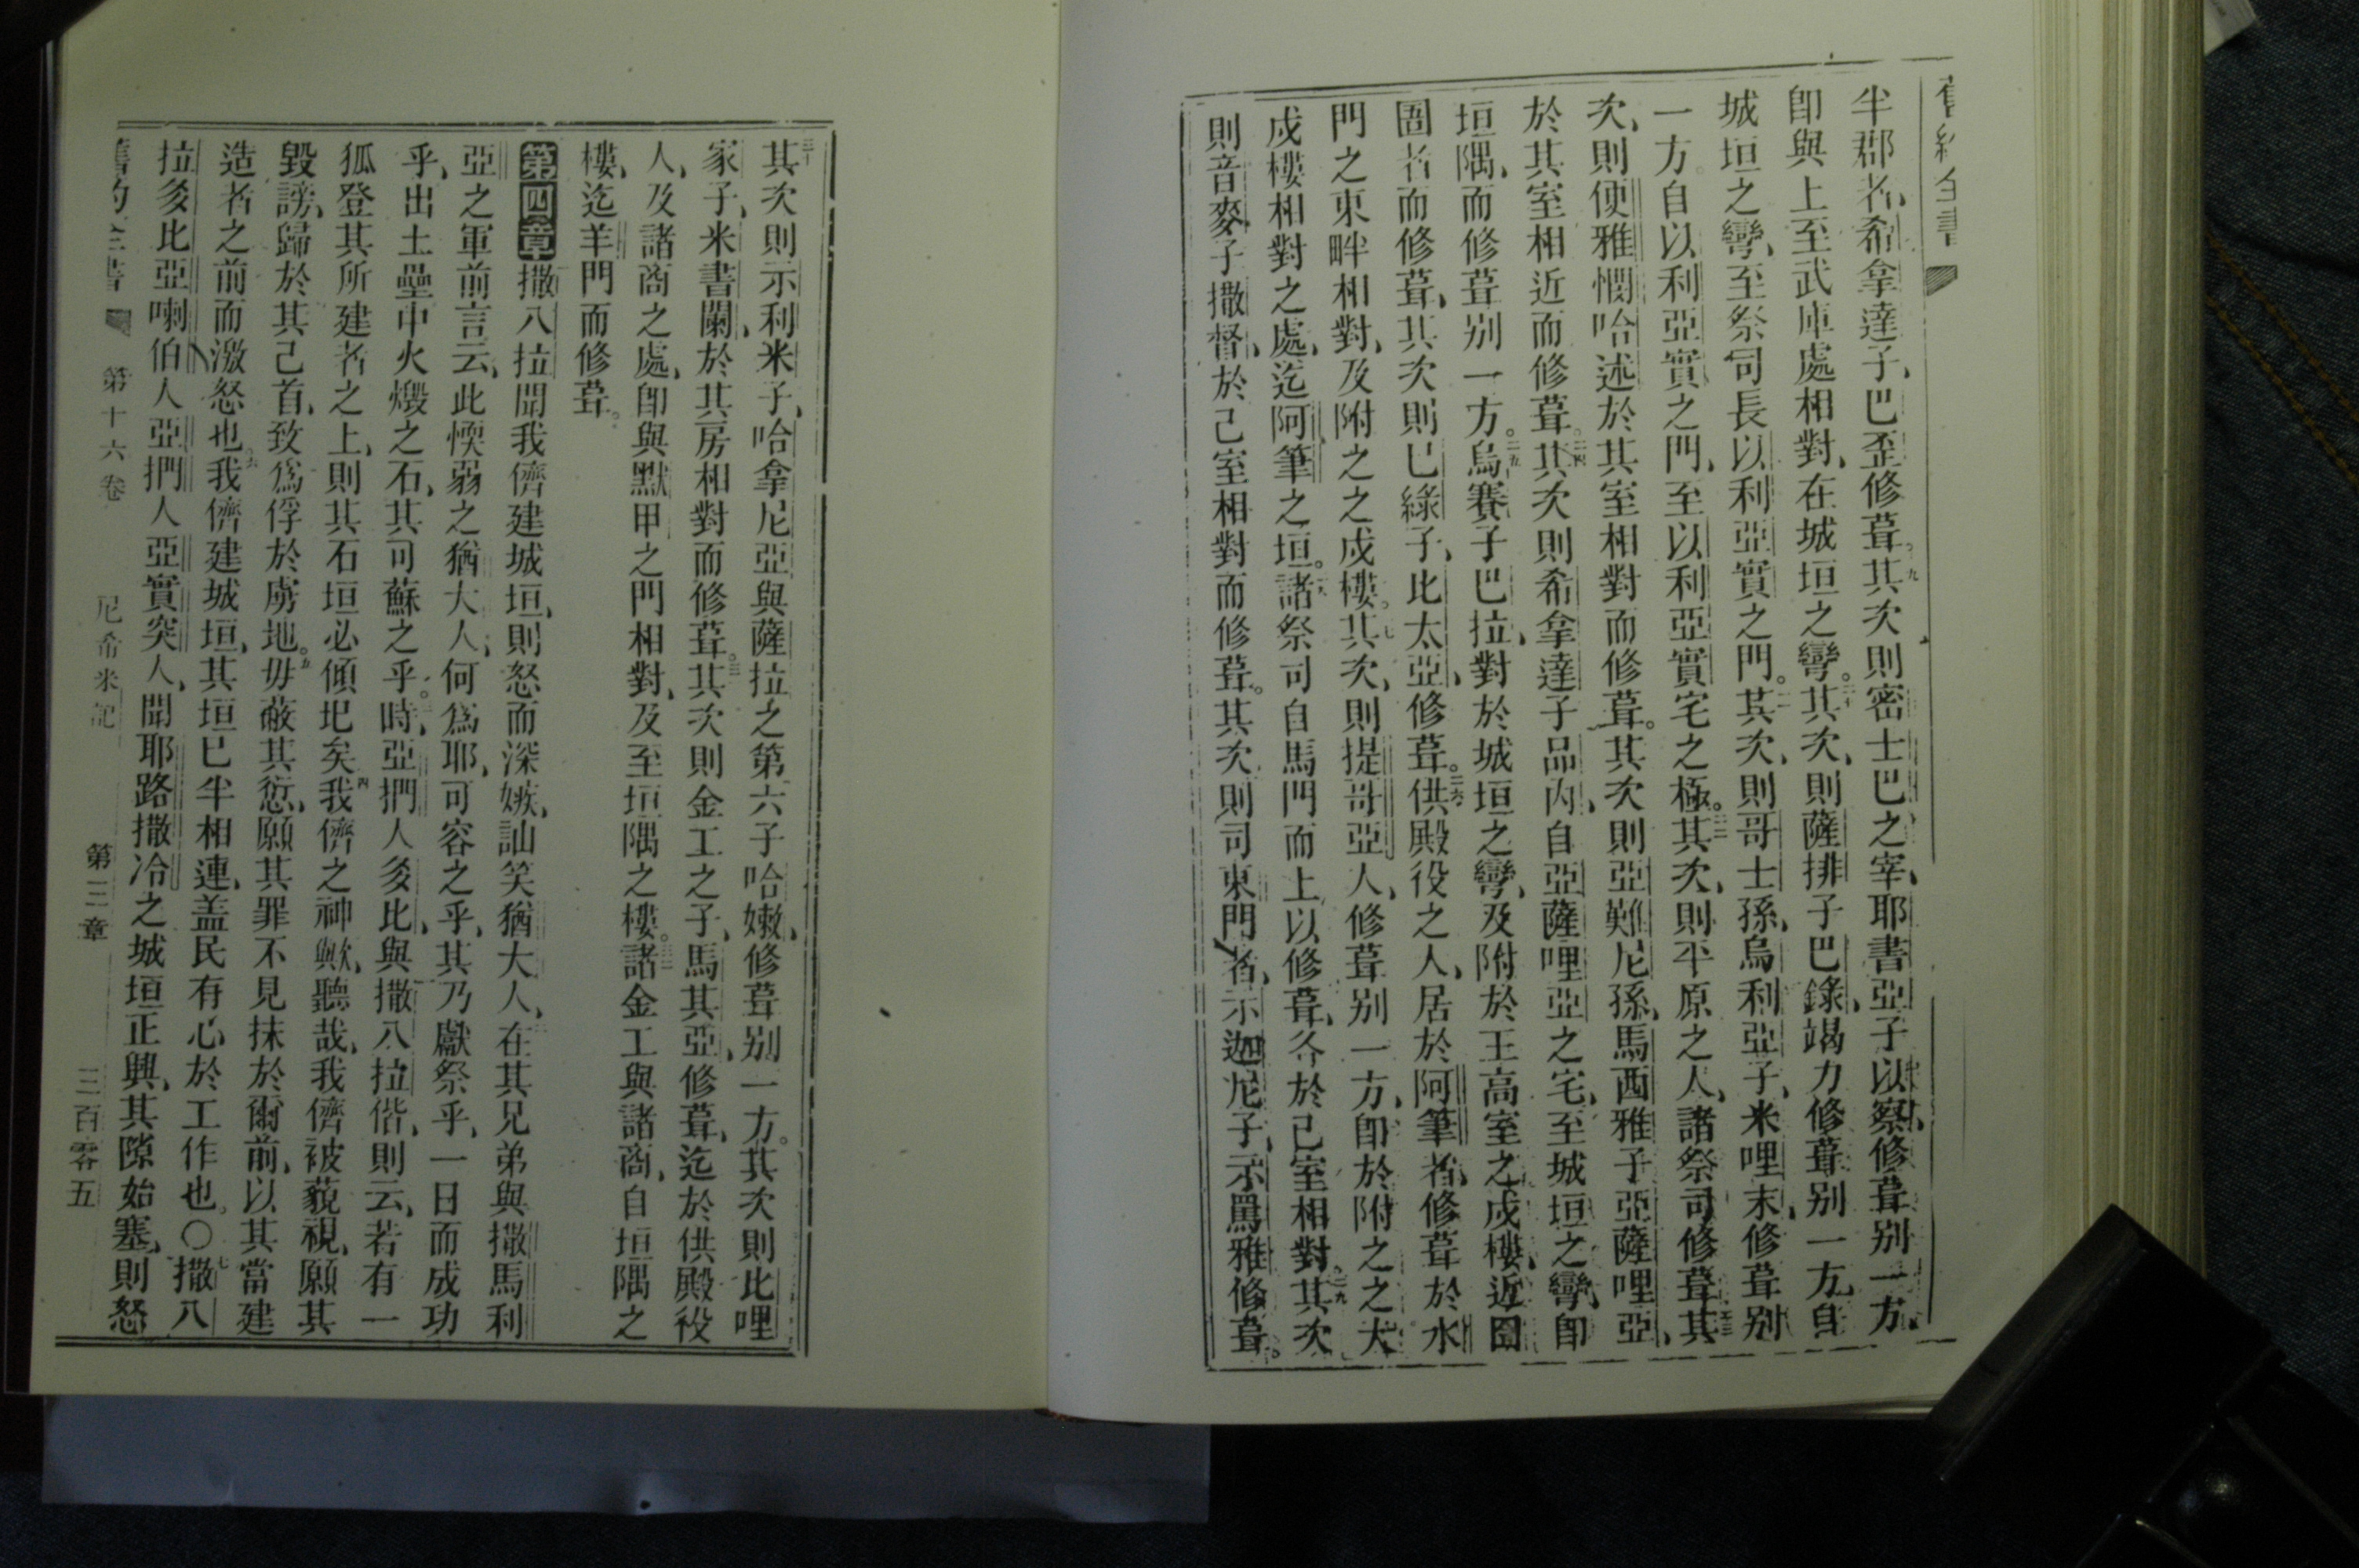 舊約全書
半郡者、希拿達子、巴歪修葺。十九其次則密士巴之宰、耶書亞子以察、修葺别一方、
卽與上至武庫處相對、在城垣之彎。二十其次、則薩排子巴錄、竭力修葺别一方、自
城垣之彎、至祭司長以利亞實之門。二一其次、則哥士孫、烏利亞子、米哩末、修葺别
一方。自以利亞實之門、至以利亞實宅之極。二二其次、則平原之人、諸祭司修葺。二三其
次、則便雅憫哈述於其室相對而修葺。其次則亞難尼孫、馬西雅子亞薩哩亞、
於其室相近而修葺。二四其次則希拿達子品内、自亞薩哩亞之宅、至城垣之彎、卽
垣隅、而修葺别一方。二五烏賽子巴拉、對於城垣之彎、及附於王高室之戍樓、近囹
圄者而修葺、其次則巴綠子、比太亞、修葺。二六供殿役之人、居於阿筆者、修葺於水
門之東畔相對、及附之之戍樓。二七其次、則提哥亞人、修葺别一方、卽於附之之大
戍樓相對之處、迄阿筆之垣。二八諸祭司自馬門而上、以修葺、各於己室相對。二九其次
則音麥子撒督、於己室相對而修葺。其次則司東門者、示迦尼子、示罵雅修葺。
三十其次則示利米子、哈拿尼亞與薩拉之第六子哈嫩、修葺别一方。其次則比哩
家子、米書闌、於其房相對而修葺。三一其次則金工之子、馬其亞、修葺、迄於供殿役
人、及諸商之處、卽與默甲之門相對、及至垣隅之樓。三二諸金工與諸商、自垣隅之
樓、迄羊門而修葺。
第四章 撒八拉聞我儕建城垣、則怒而深嫉、訕笑猶大人、二在其兄弟與撒馬利
亞之軍前言云、此愞弱之猶大人、何爲耶、可容之乎、其乃獻祭乎、一日而成功
乎、出土壘中火燬之石、其可蘇之乎。三時、亞捫人㚊比、與撒八拉偕、則云、若有一
狐登其所建者之上、則其石垣必傾圯矣。四我儕之神歟、聽哉、我儕被藐視、願其
毀謗、歸於其己首、致爲俘於虜地。五毋蔽其愆、願其罪不見抹於爾前、以其當建
造者之前而激怒也。六我儕建城垣、其垣已半相連、盖民有心於工作也。〇七撒八
拉㚊比亞喇伯人亞捫人亞實突人、聞耶路撒冷之城垣正興、其隙始塞、則怒
舊約全書 第十六卷 尼希米記 第三章 三百零五